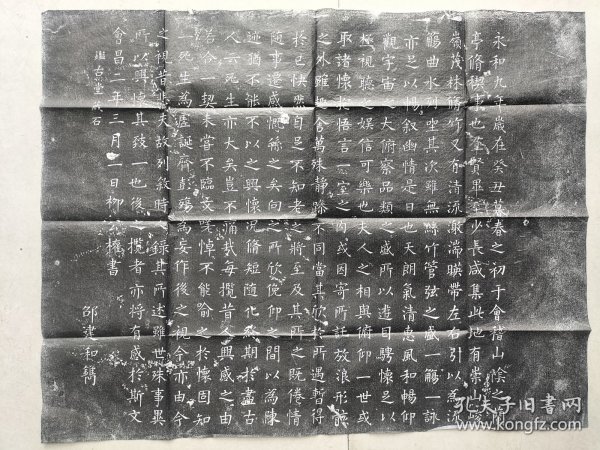 永和九年歲在癸丑暮春之初于會稽山陰之蘭
亭脩禊事也羣賢畢至少長咸集此地有崇山峻
嶺茂林脩竹又有清流激湍暎帶左右引以為流
觴曲水列坐其次雖無絲竹管弦之盛一觴一詠
亦足以暢敘幽情是日也天朗氣清惠風和暢仰
觀宇宙之大俯察品類之盛所以遊目騁懷足以
極視聽之娛信可樂也夫人之相與俯仰一世或
取諸懷抱悟言一室之內或因寄所託放浪形骸
之外雖趣舍萬殊靜躁不同當其欣於所遇暫得
於己快然自足不知老之將至及其所之既倦情
隨事遷感慨係之矣向之所欣俛仰之間以為陳
迹猶不能不以之興懷況脩短隨化終期於盡古
人云死生亦大矣豈不痛哉每攬昔人興感之由
若合一契未嘗不臨文嗟悼不能喻之於懷固知
一死生為虛誕齊彭殤為妄作後之視今亦由今
之視昔悲夫故列敘時人錄其所述雖世殊事異
所以興懷其致一也後之攬者亦將有感於斯文
會昌二年三月一日柳公權書
邵建和鐫
孔夫子旧书网